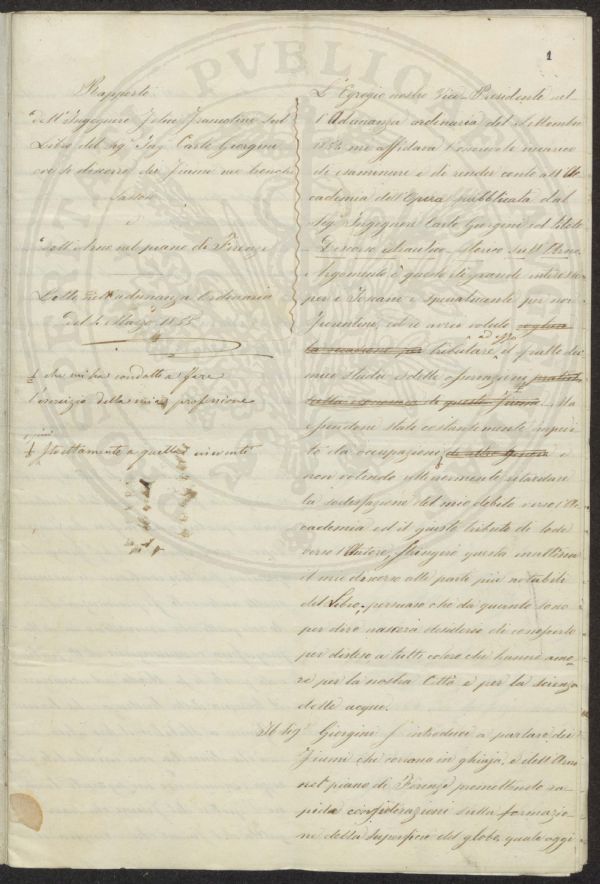 1
Rapporto
dell'Ingegnere Felice Francolini sul
Libro del Sig.r Ing. Carlo Giorgini
ove si discorre dei fiumi nei tronchi
sassosi
e
dell'Arno nel piano di Firenze
Letto nell'adunanza Ordinaria
del 4 Marzo 1855
che mi ha condotto a fare
l'esercizio della mia professione
strettamente a quelle
L'Egregio nostro Vice-Presidente nel-
l'Adunanza ordinaria del Settembre
1854 mi affidava l'onorevole incarico
di esaminare e di render conto all'Ac
cademia dell'Opera pubblicata dal
Sig.r Ingegnere Carlo Giorgini col titolo
Discorso idraulico storico sull'Arno.
Argomento è questo di grande interesse
per i Toscani e specialmente per noi
Fiorentini, ed io avrei voluto
tributare ad esso il frutto dei
miei studii e delle osservazioni
Ma
essendomi state costantemente impedi
te da occupazioni e
non volendo ulteriormente ritardare
la sodisfazione del mio debito verso l'Ac
cademia ed il giusto tributo di lode
verso l'Autore, stringerò questa mattina
il mio discorso alle parti più notabili
del Libro, persuaso che da quanto sono
per dire nascerà desiderio di conoscerlo
per disteso a tutti coloro che hanno amo-
re per la nostra Città e per la scienza
delle acque.
Il Sig.r Giorgini s'introduce a parlare dei
Fiumi che corrono in ghiaja, e dell'Arno
nel piano di Firenze premettendo ra-
pide considerazioni sulla formazio
ne della superficie del globo, quale oggi